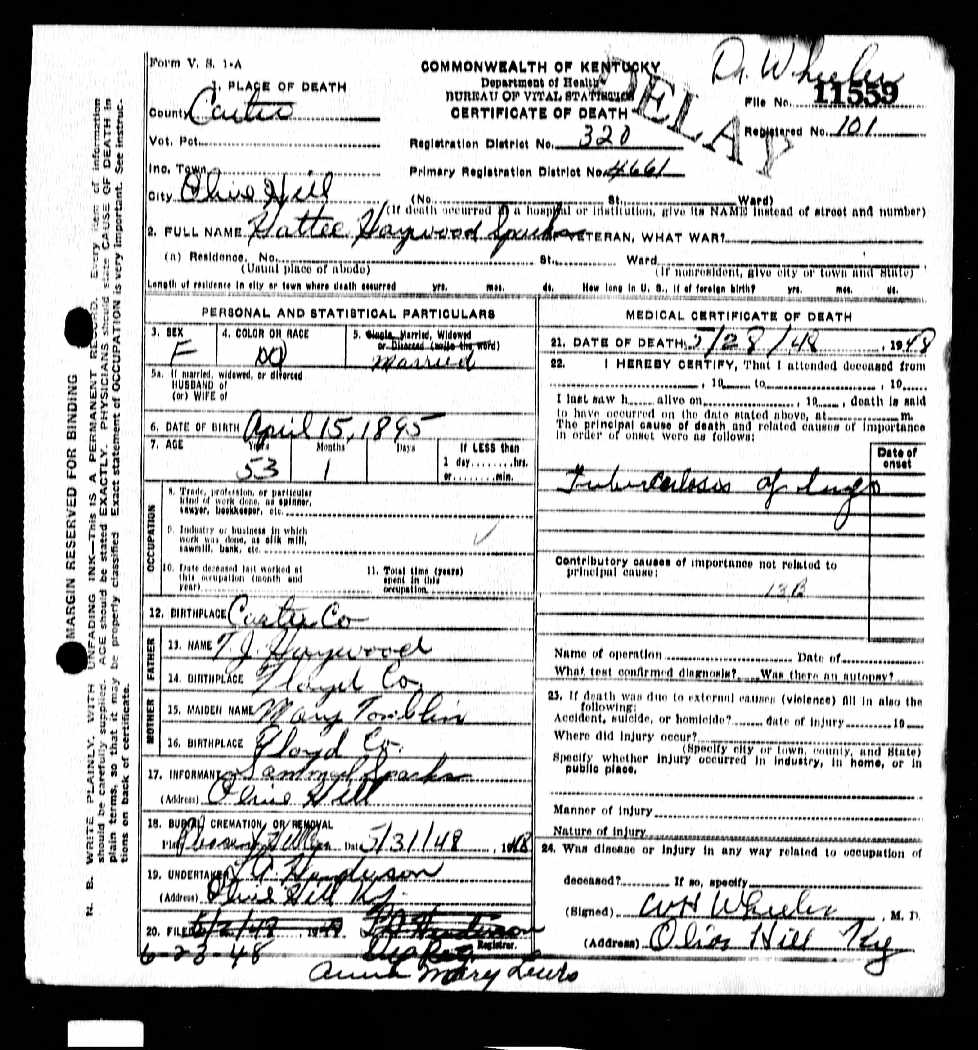 Dr. Wheeler
DELAY
Form V. S. 1-A
COMMONWEALTH OF KENTUCKY
Department of Health
BUREAU OF VITAL STATISTICS
CERTIFICATE OF DEATH
File No. 11559
Registered No. 101
1. PLACE OF DEATH
County Carter
Vot. Pct.
Registration District No. 320
Inc. Town
Primary Registration District No. 4661
City Olive Hill (No. St. Ward)
(If death occurred in a hospital or institution, give its NAME instead of street and number)
2. FULL NAME Hattee Haywood Sparks VETERAN, WHAT WAR?
(a) Residence. No. St. Ward
(Usual place of abode) (If nonresident, give city or town and State)
Length of residence in city or town where death occurred yrs. mos. ds. How long in U. S., if of foreign birth? yrs. mos. ds.
PERSONAL AND STATISTICAL PARTICULARS
3. SEX F
4. COLOR OR RACE
5. Single, Married, Widowed
or Divorced (write the word)
Married
5a. If married, widowed, or divorced
HUSBAND of
(or) WIFE of
6. DATE OF BIRTH April 15, 1895
7. AGE Years Months Days If LESS than
53 1 1 day........hrs.
or........min.
OCCUPATION
8. Trade, profession, or particular
kind of work done, as spinner,
sawyer, bookkeeper, etc.
9. Industry or business in which
work was done, as silk mill,
sawmill, bank, etc.
10. Date deceased last worked at
this occupation (month and
year)
11. Total time (years)
spent in this
occupation
12. BIRTHPLACE Carter Co
FATHER
13. NAME T J Haywood
14. BIRTHPLACE Floyd Co.
MOTHER
15. MAIDEN NAME Mary Tomblin
16. BIRTHPLACE Floyd Co.
17. INFORMANT Sammel Sparks
(Address) Olive Hill
18. BURIAL CREMATION OR REMOVAL
Place Date 5/31/48, 1948
19. UNDERTAKER Henderson
(Address) Olive Hill Ky
20. FILED 19
Registrar.
6-23-48
Anna Mary Lewis
MEDICAL CERTIFICATE OF DEATH
21. DATE OF DEATH 5/28/48, 1948
22. I HEREBY CERTIFY, That I attended deceased from
, 19 to , 19
I last saw h alive on , 19 , death is said
to have occurred on the date stated above, at m.
The principal cause of death and related causes of importance
in order of onset were as follows:
Date of
onset
Tuberculosis of lungs
Contributory causes of importance not related to
principal cause:
13B
Name of operation Date of
What test confirmed diagnosis? Was there an autopsy?
23. If death was due to external causes (violence) fill in also the
following:
Accident, suicide, or homicide? date of injury 19
Where did injury occur?
(Specify city or town, county, and State)
Specify whether injury occurred in industry, in home, or in
public place.
Manner of injury
Nature of injury
24. Was disease or injury in any way related to occupation of
deceased? If so, specify
(Signed) W H Wheeler, M. D.
(Address) Olive Hill Ky
MARGIN RESERVED FOR BINDING
N. B. WRITE PLAINLY, WITH UNFADING INK—THIS IS A PERMANENT RECORD. Every item of information
should be carefully supplied. AGE should be stated EXACTLY. PHYSICIANS should state CAUSE OF DEATH in
plain terms, so that it may be properly classified. Exact statement of OCCUPATION is very important. See instruc-
tions on back of certificate.